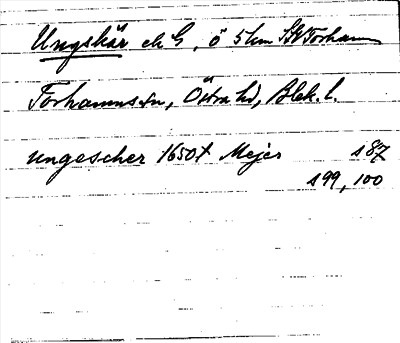 Ungskär ek G, ö 5 km SV Torhamn
Torhamns sn, Östra hd, Blek. l.
ungescher 1650t Mejer s 87
s 99, 100